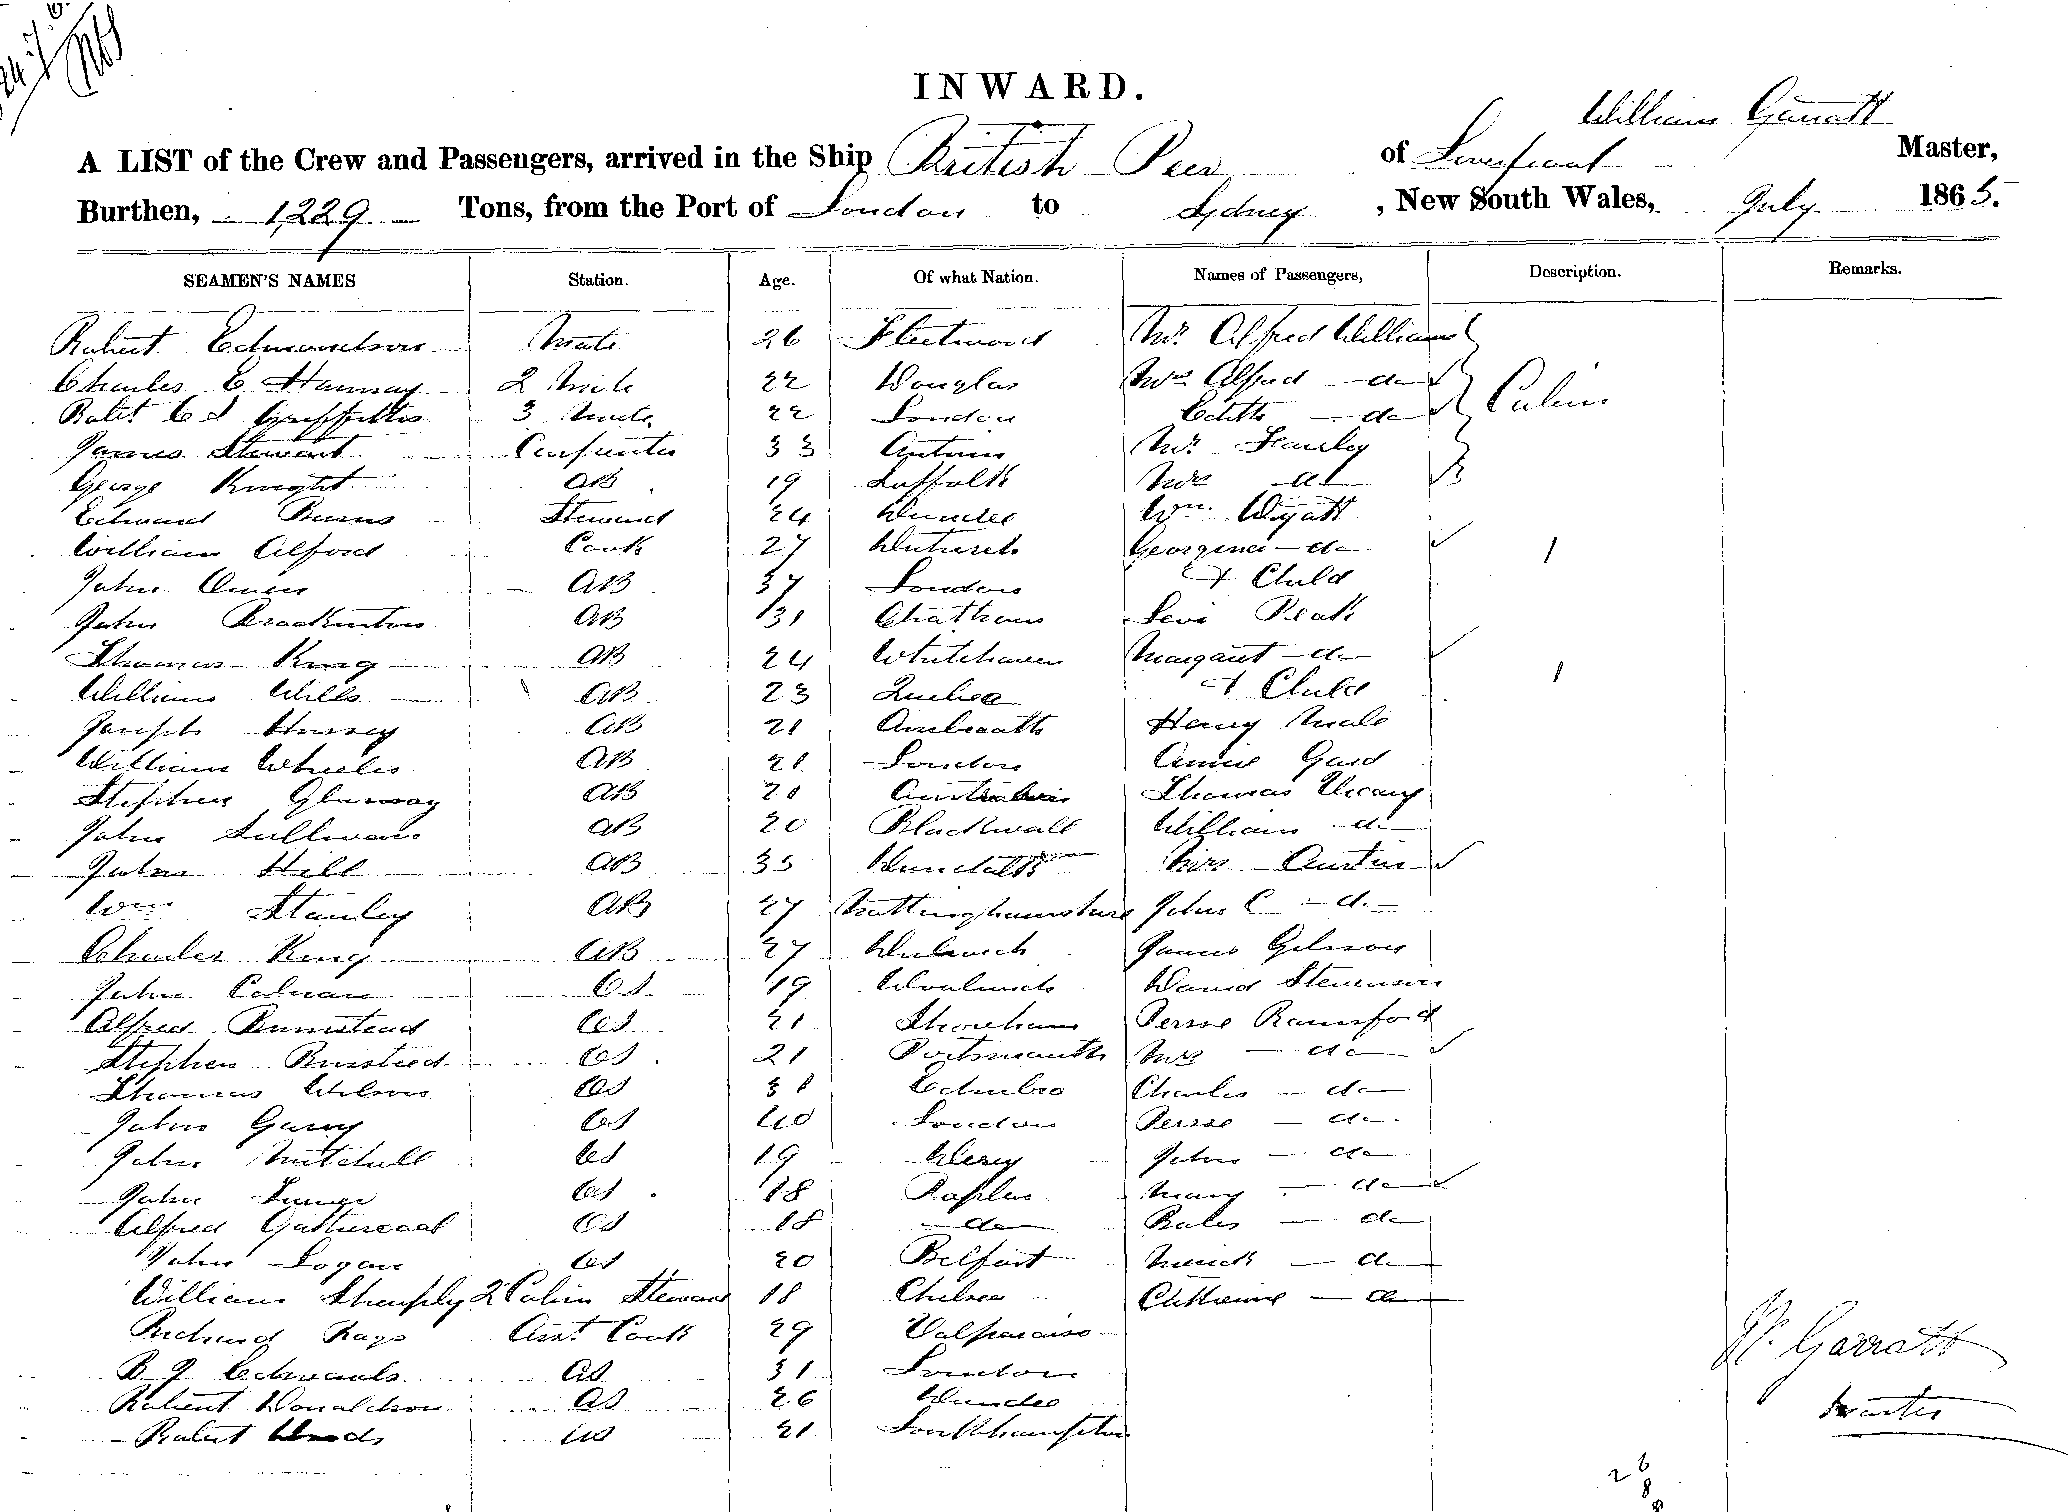 INWARD.
William Garratt
A LIST of the Crew and Passengers, arrived in the Ship British Peer of Liverpool Master,
Burthen, 1,229 Tons, from the Port of London to Sydney, New South Wales, July 1865.
SEAMEN'S NAMES Station. Age. Of what Nation. Names of Passengers, Description. Remarks.
Robert Edmondson Mate 26 Fleetwood Mr. Alfred Williams
Charles E Hannay 2 Mate 22 Douglas Mrs Alfred do Cabin
Robt C S Griffiths 3 Mate 22 London Edith do
James Stewart Carpenter 33 Antrim Mr.
George Knight AB 19 Suffolk Mrs do
Edward Burns Steward 24 Dundee Wm. Wyatt
William Alford Cook 27 Georgina do 1
John Owen AB 37 London + Child
John Brockinton AB 31 Chatham Levi Peak
Thomas King AB 24 Whitehaven Margaret do 1
William Wills AB 23 Quebec + Child
Joseph AB 21 Henry Male
William Wheeler AB 21 London Annie Gard
Stephen AB 20 Thomas Vicary
John Sullivan AB 20 Blackwall William do
John Hill AB 35 Mrs Austin
Wm Stanley AB 27 Nottinghamshire John C do
Charles King AB 27 James Gibson
John Colman OS 19 Woolwich David Stevenson
Alfred Bumstead OS 21 Shoreham Persse Rainsford
Stephen Bursted OS 21 Portsmouth Mrs do
Thomas Wilson OS 31 Charles do
John Garry OS 40 London Persse do
John Mitchell OS 19 John do
John Turner OS 18 Poplar Mary do
Alfred Gathercoal OS 18 do do
John Logan OS 20 Belfast do
William Sheply 2 Cabin Steward 18 Chelsea do
Richard Rays Asst Cook 29 Valparaiso
B J Edwards OS 31 London
Robert Donaldson OS 26 Dundee
Robert OS 21 Southhampton
W. Garratt
Master